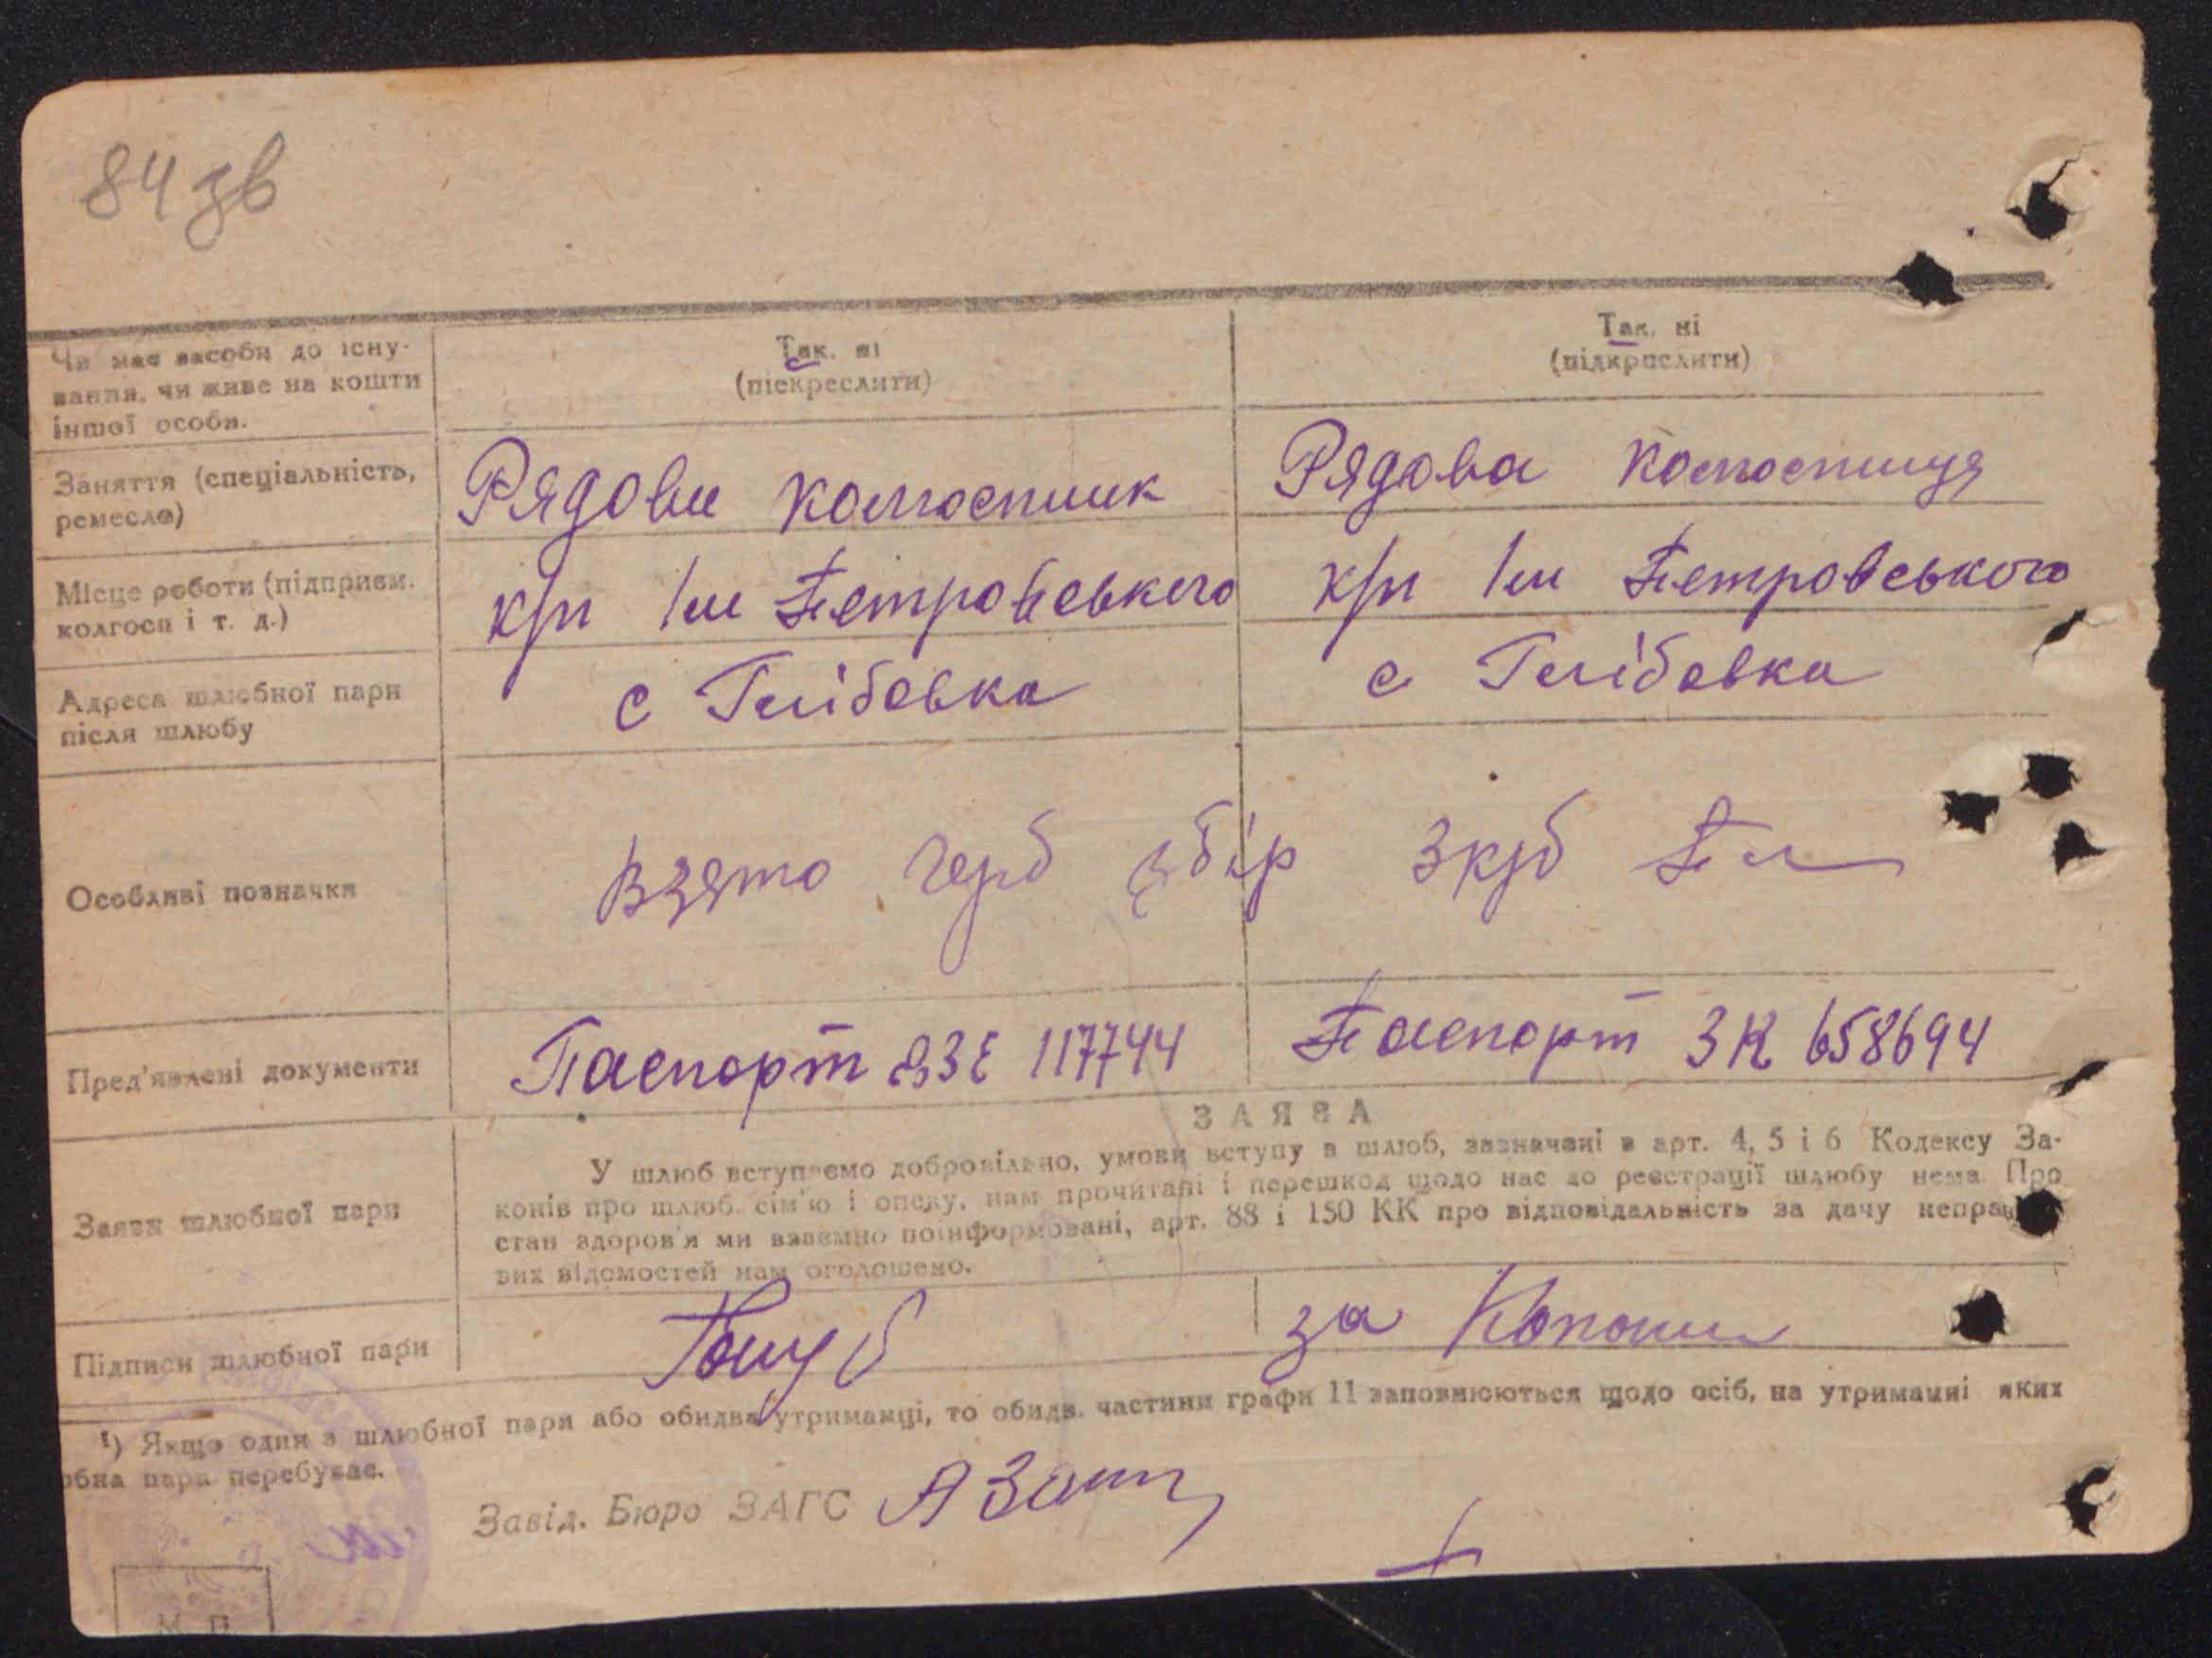 84 зв
Чи має засоби до існу-
вання, чи живе на кошти
іншої особи.
Так. ні
(піекреслити)
Так. ні
(підкрпслити)
Заняття (спеціальність,
ремесло)
Рядови колгоспник
Рядова колгоспниця
Місце роботи (підприєм.
колгосп і т. д.)
к/п Ім Петровського
к/п Ім Петровського
Адреса шлюбної пари
після шлюбу
с Глібовка
с Глібовка
Особливі позначки
Взято герб збір 3крб
Пред'явлені документи
Паспорт ЗЕ 117744
Паспорт ЗК 658694
Заява шлюбної пари
ЗАЯВА
У шлюб вступаємо добровільно, умови вступу в шлюб, зазначені в арт. 4, 5 і 6 Кодексу За-
конів про шлюб. сім'ю і опеку, нам прочитані і перешкод щодо нас до реєстрації шлюбу нема. Про
стан здоров'я ми взаємно поінформовані, арт. 88 і 150 КК про відповідальність за дачу неправ
вих відомостей нам оголошено.
Підписи шлюбної пари
Голуб
за
1) Якщо один з шлюбної пари або обидва утриманці, то обидв. частини графи 11 заповнюються щодо осіб, на утриманні яких
обна пара перебуває.
Завід. Бюро ЗАГС
М. П.